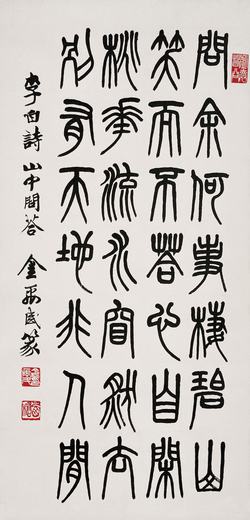 問余何事棲碧山
笑而不答心自閑
桃花流水窅然去
別有天地非人間
李白詩山中問答 金禹民篆